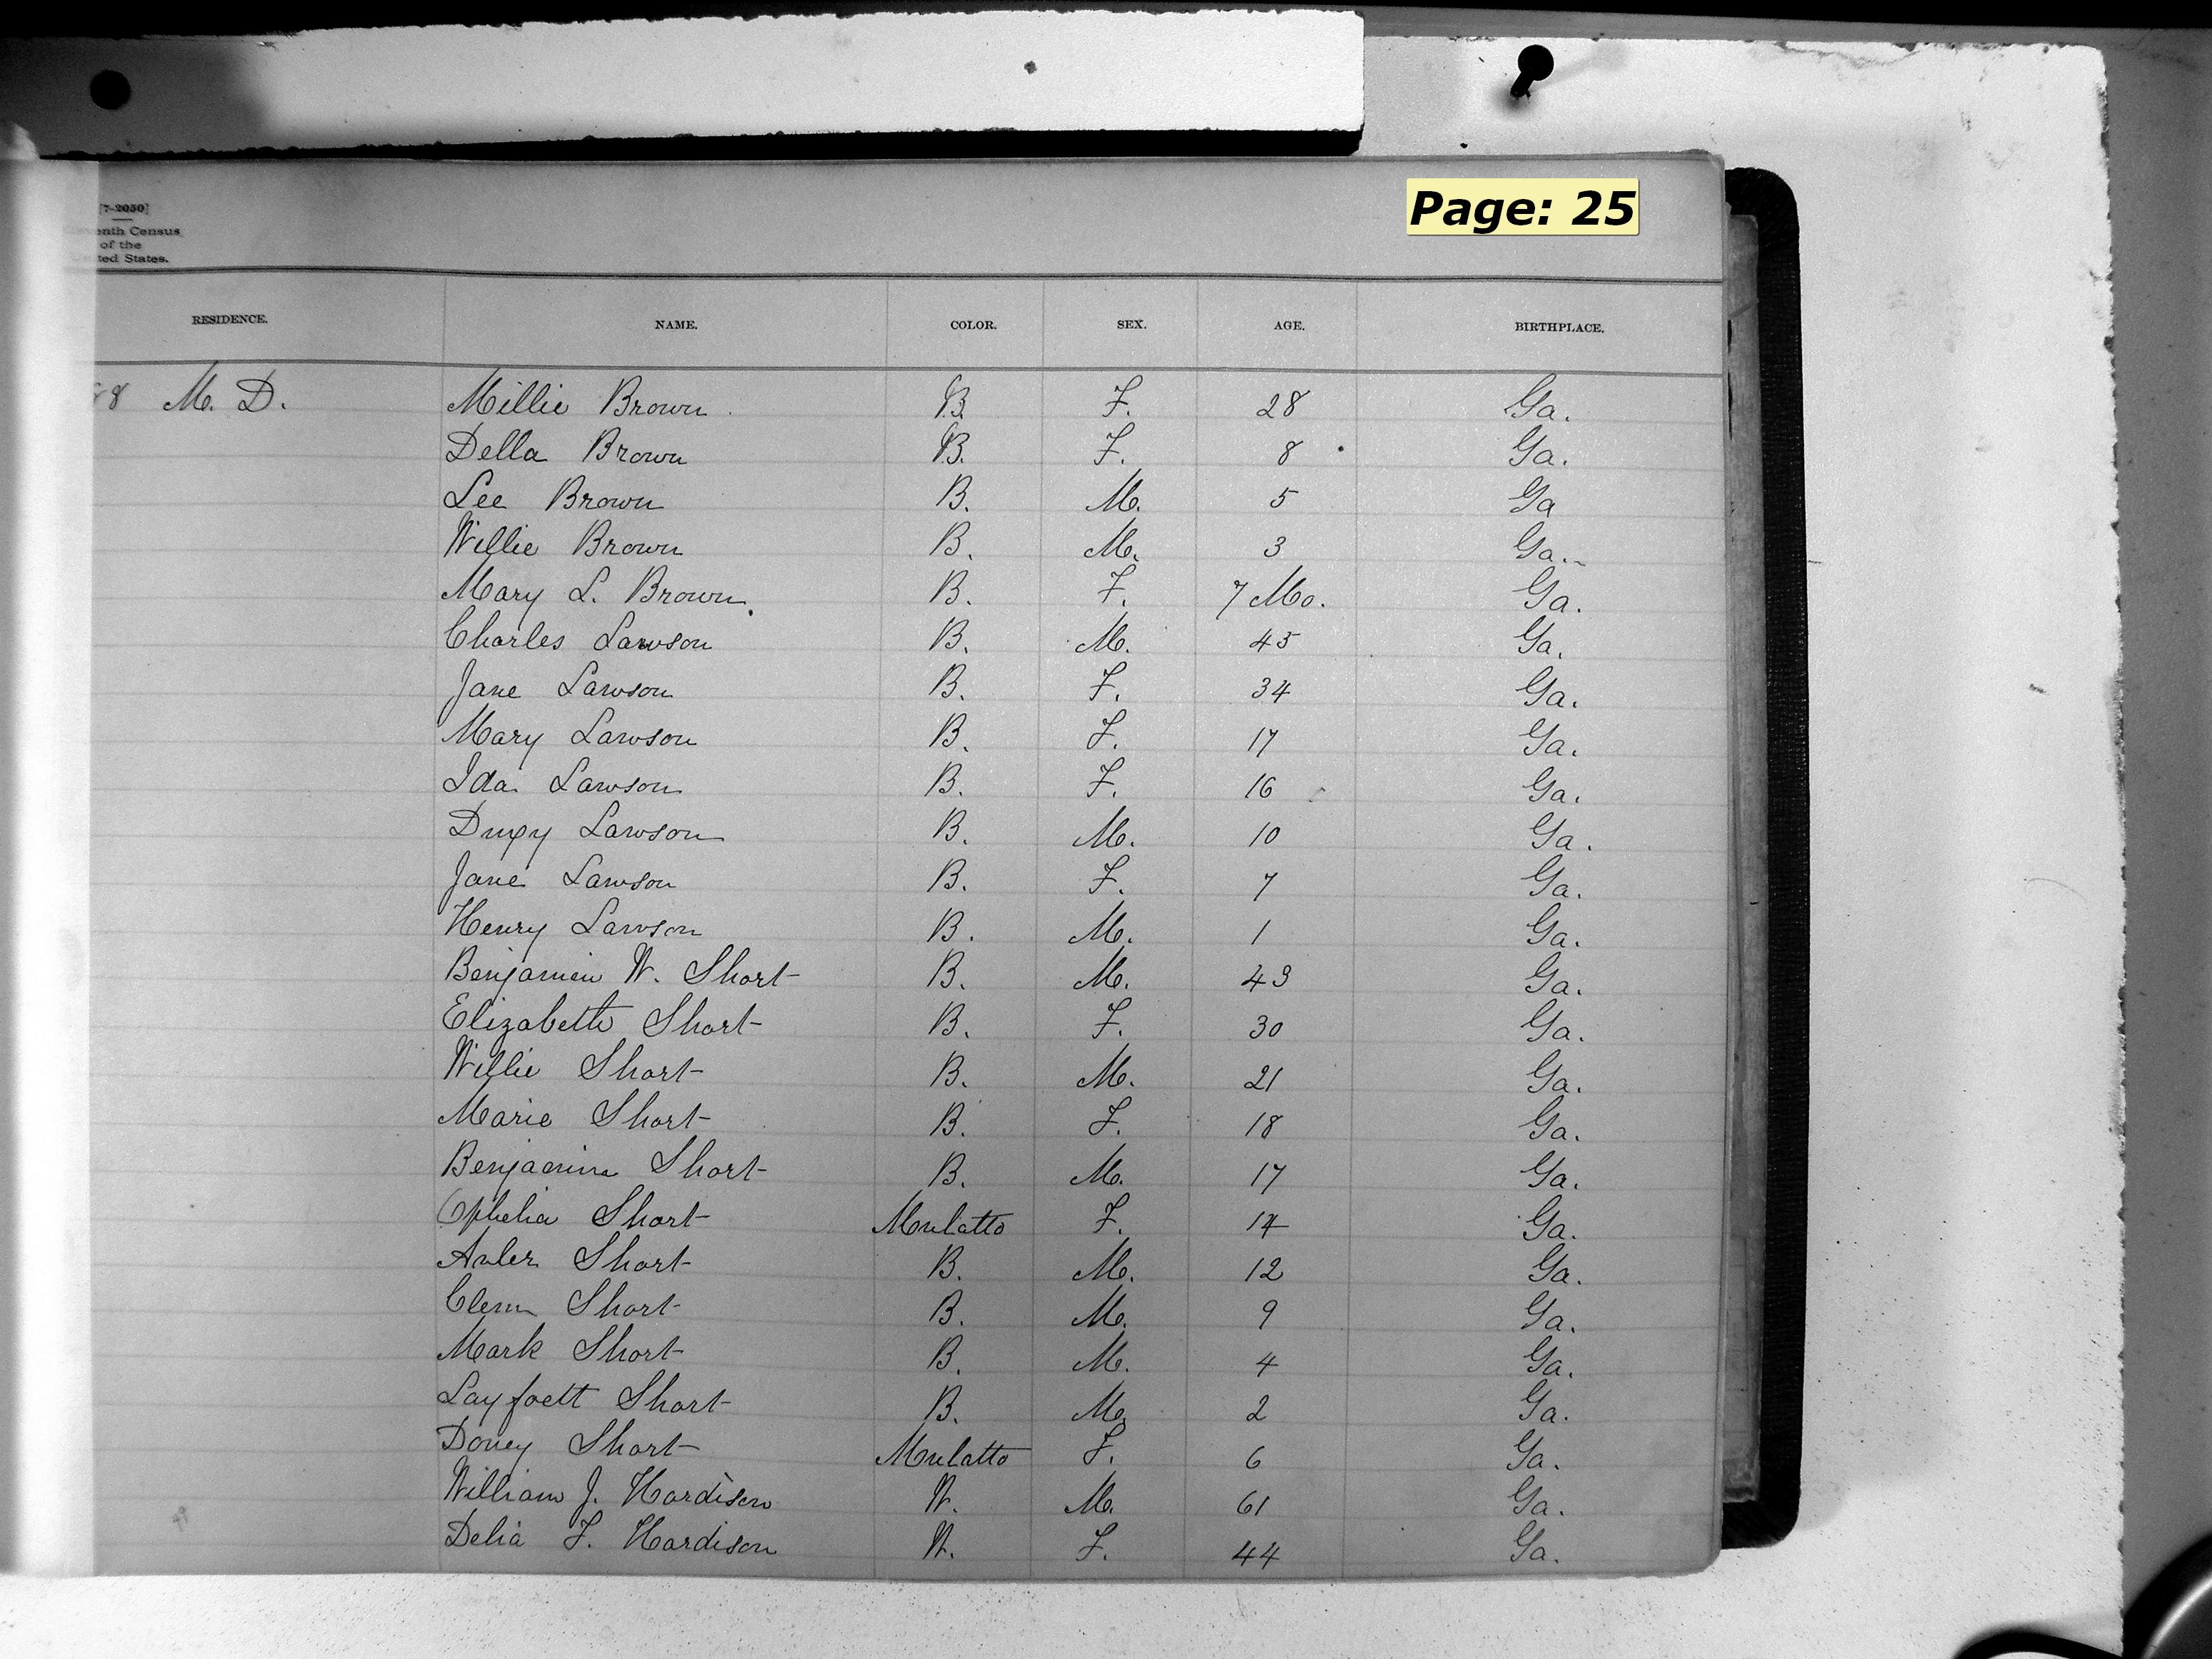 Page: 25
[7-2050]
enth Census
of the
ted States.
RESIDENCE. NAME. COLOR. SEX. AGE. BIRTHPLACE.
8 M. D. Millie Brown B. F. 28 Ga.
Della Brown B. F. 8 Ga.
Lee Brown B. M. 5 Ga
Willie Brown B. M. 3 Ga.
Mary L. Brown. B. F. 7 Mo. Ga.
Charles Lawson B. M. 45 Ga.
Jane Lawson B. F. 34 Ga.
Mary Lawson B. F. 17 Ga.
Ida Lawson B. F. 16 Ga.
Lawson B. M. 10 Ga.
Jane Lawson B. F. 7 Ga.
Henry Lawson B. M. 1 Ga.
Benjamin W. Short B. M. 43 Ga.
Elizabeth Short B. F. 30 Ga.
Willie Short B. M. 21 Ga.
Marie Short B. F. 18 Ga.
Benjamin Short B. M. 17 Ga.
Ophelia Short Mulatto F. 17 Ga.
Short B. M. 12 Ga.
Clem Short B. M. 9 Ga.
Mark Short B. M. 4 Ga.
Layfoett Short B. M. 2 Ga.
Doney Short Mulatto F. 6 Ga.
William J. Hardison W. M. 61 Ga.
Delia F. Hardison W. F. 44 Ga.